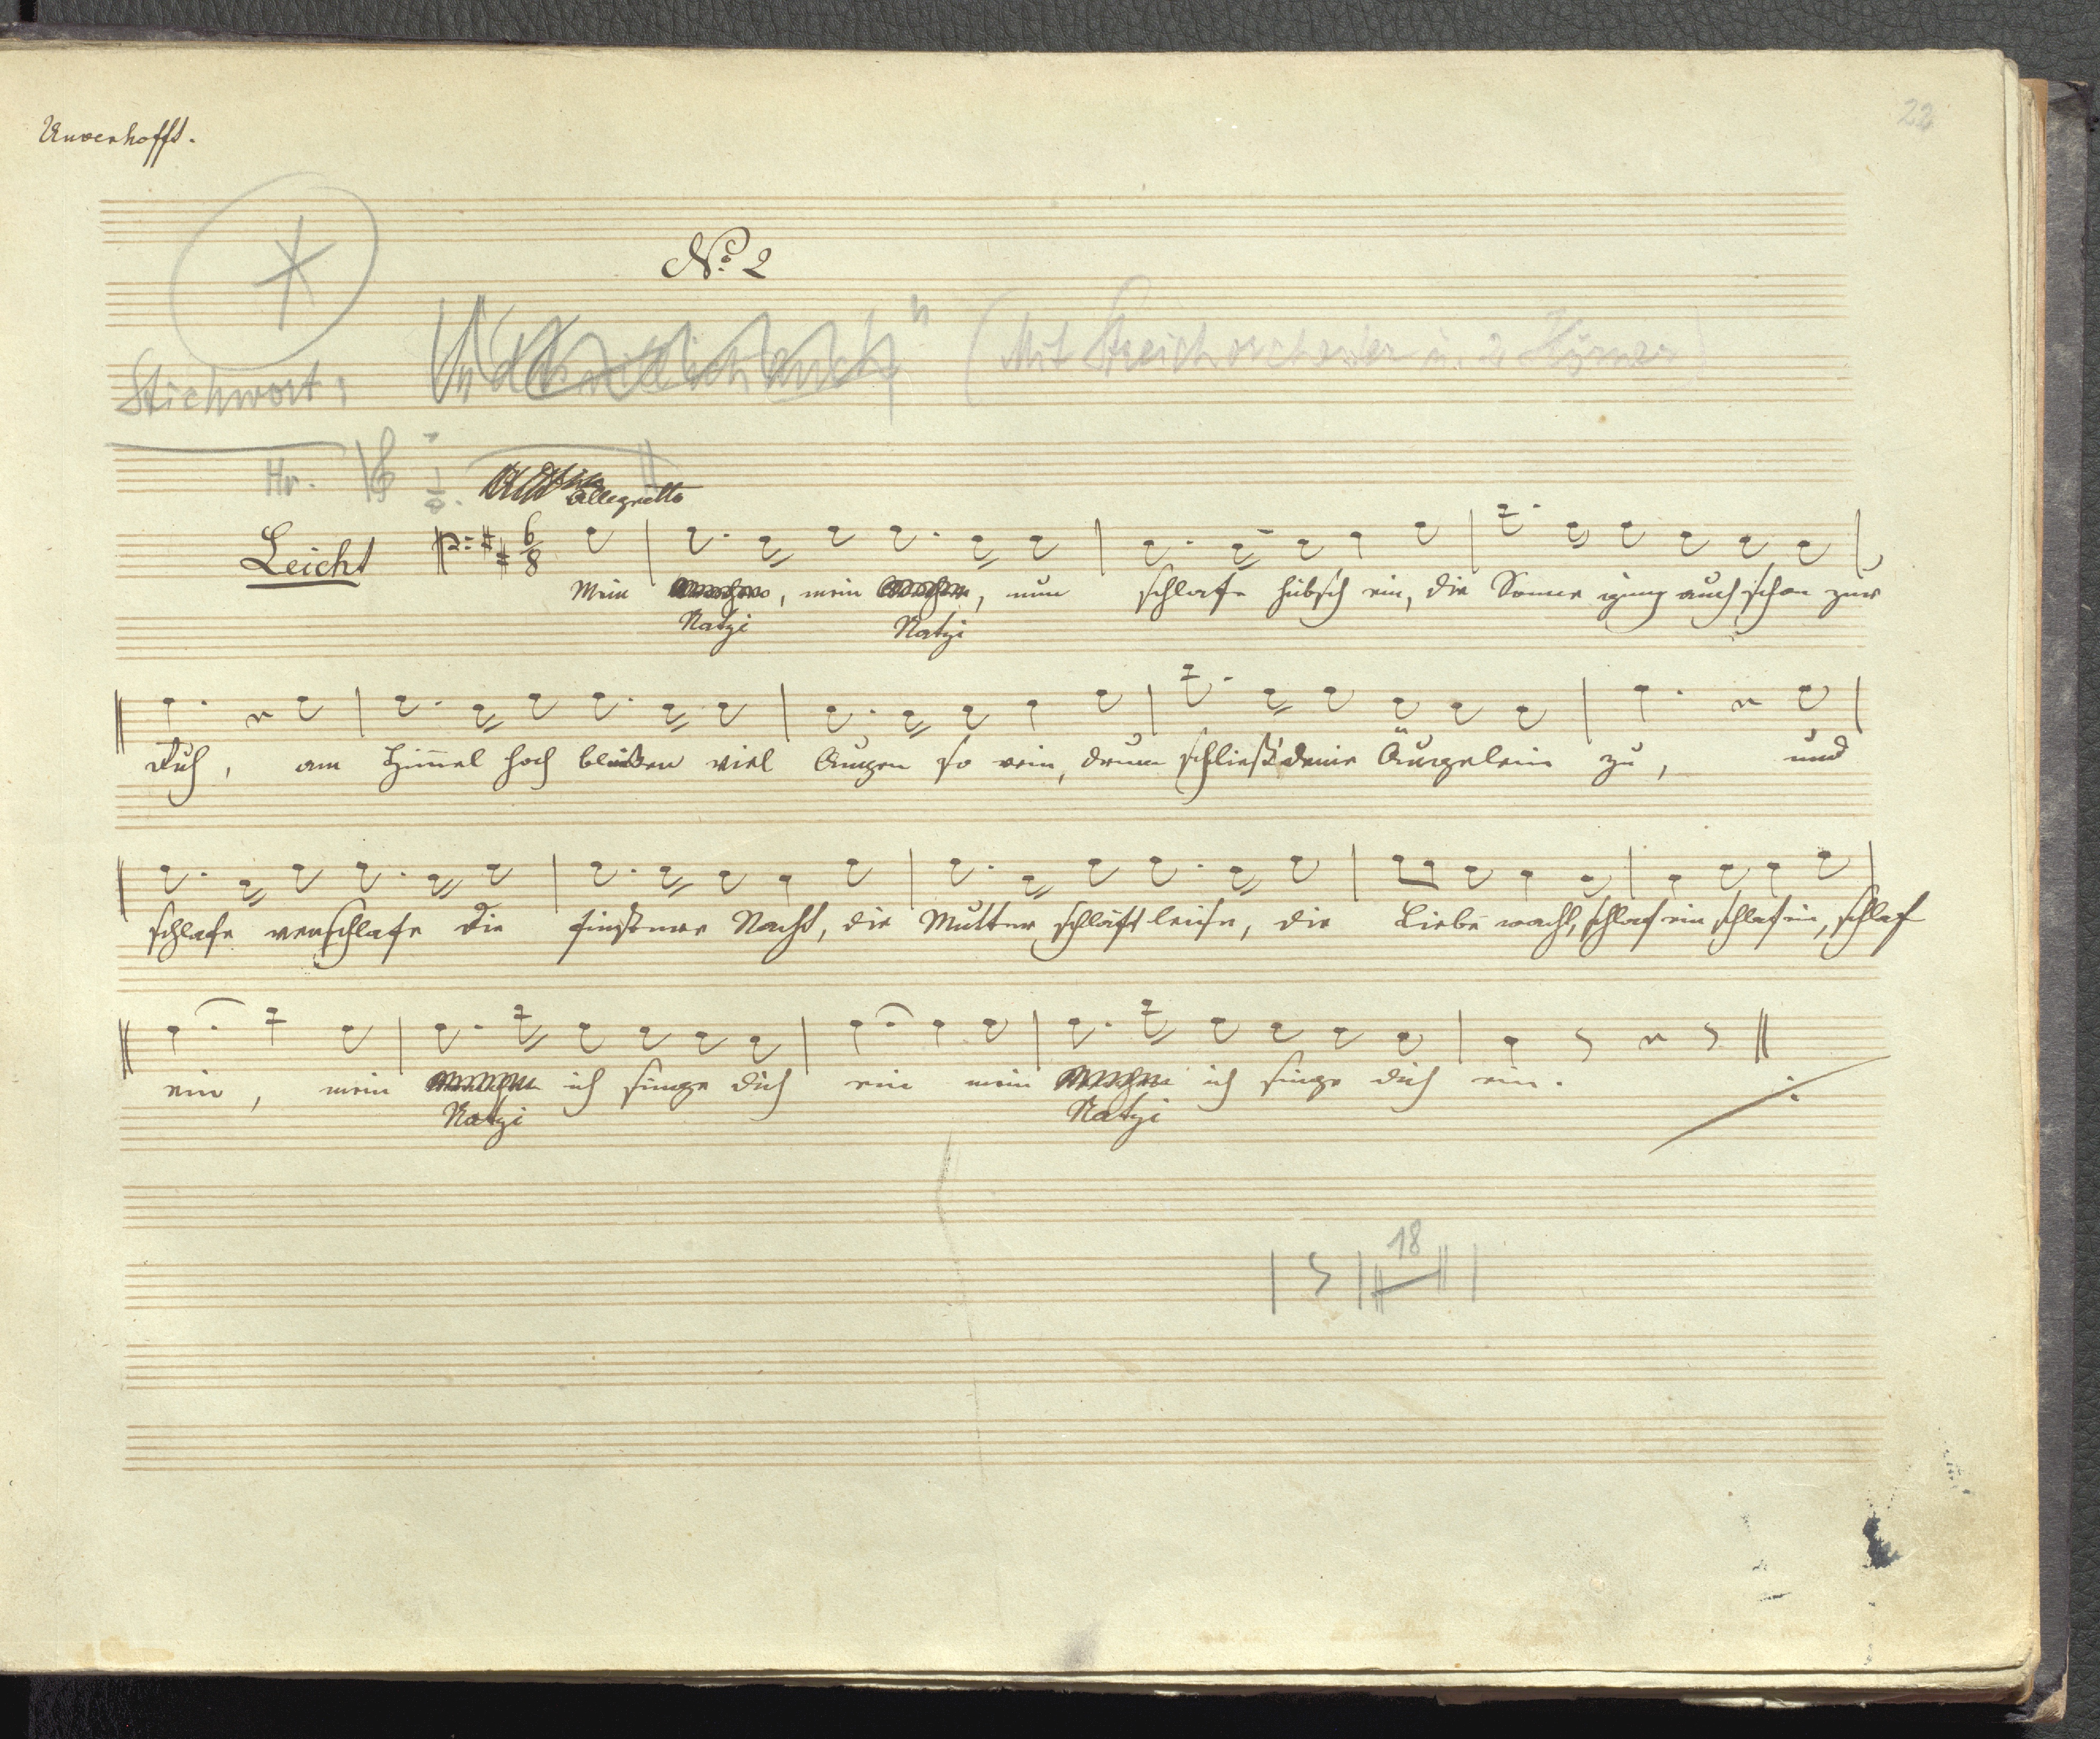 Unverhofft.
22
No. 2
Stichwort: (Mit Streichorchester u. 2 Hörner)
Hr.
Allegretto
Leicht 6/8
Mein, mein, nun schlafe hübsch ein, die Sonne ging auch schon zur
Natzi Natzi
Ruh, am Himmel hoch blinken viel Augen so rein, drum schließ' deine Äugelein zu, und
schlafe verschlafe die finstere Nacht, die Mutter schläft leise, die Liebe wacht, schlaf ein schlaf ein, schlaf
ein, mein ich singe dich ein mein ich singe dich ein.
Natzi Natzi
18